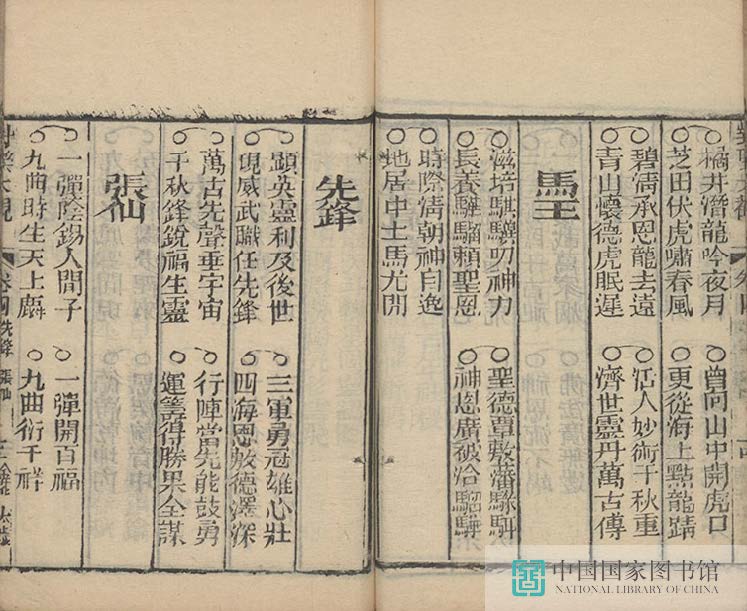 橘井潛龍吟夜月 曾向山中開虎口
芝田伏虎嘯春風 更從海上點龍睛
碧承恩龍去遠 活人妙術千秋重
青山懷德虎眠遲 濟世靈丹萬古傳
馬王
滋培騏驥叨神力 聖德覃敷蕃騄駬
長養驊騮賴聖恩 神恩廣被洽
時際清朝神自逸
地居中土馬尤閒
先鋒
顯英靈利及後世 三軍勇冠雄心壯
現威武職任先鋒 四海恩敷德澤深
萬古先聲垂宇宙 行陣當先能鼓勇
千秋鋒銳福生靈 運籌得勝果全謀
張仙
一彈陰錫人間子 一彈開百福
九曲時生天上麟 九曲衍千祥
大觀 卷四 先鋒 張仙
中国国家图书馆
NATIONAL LIBRARY OF CHINA